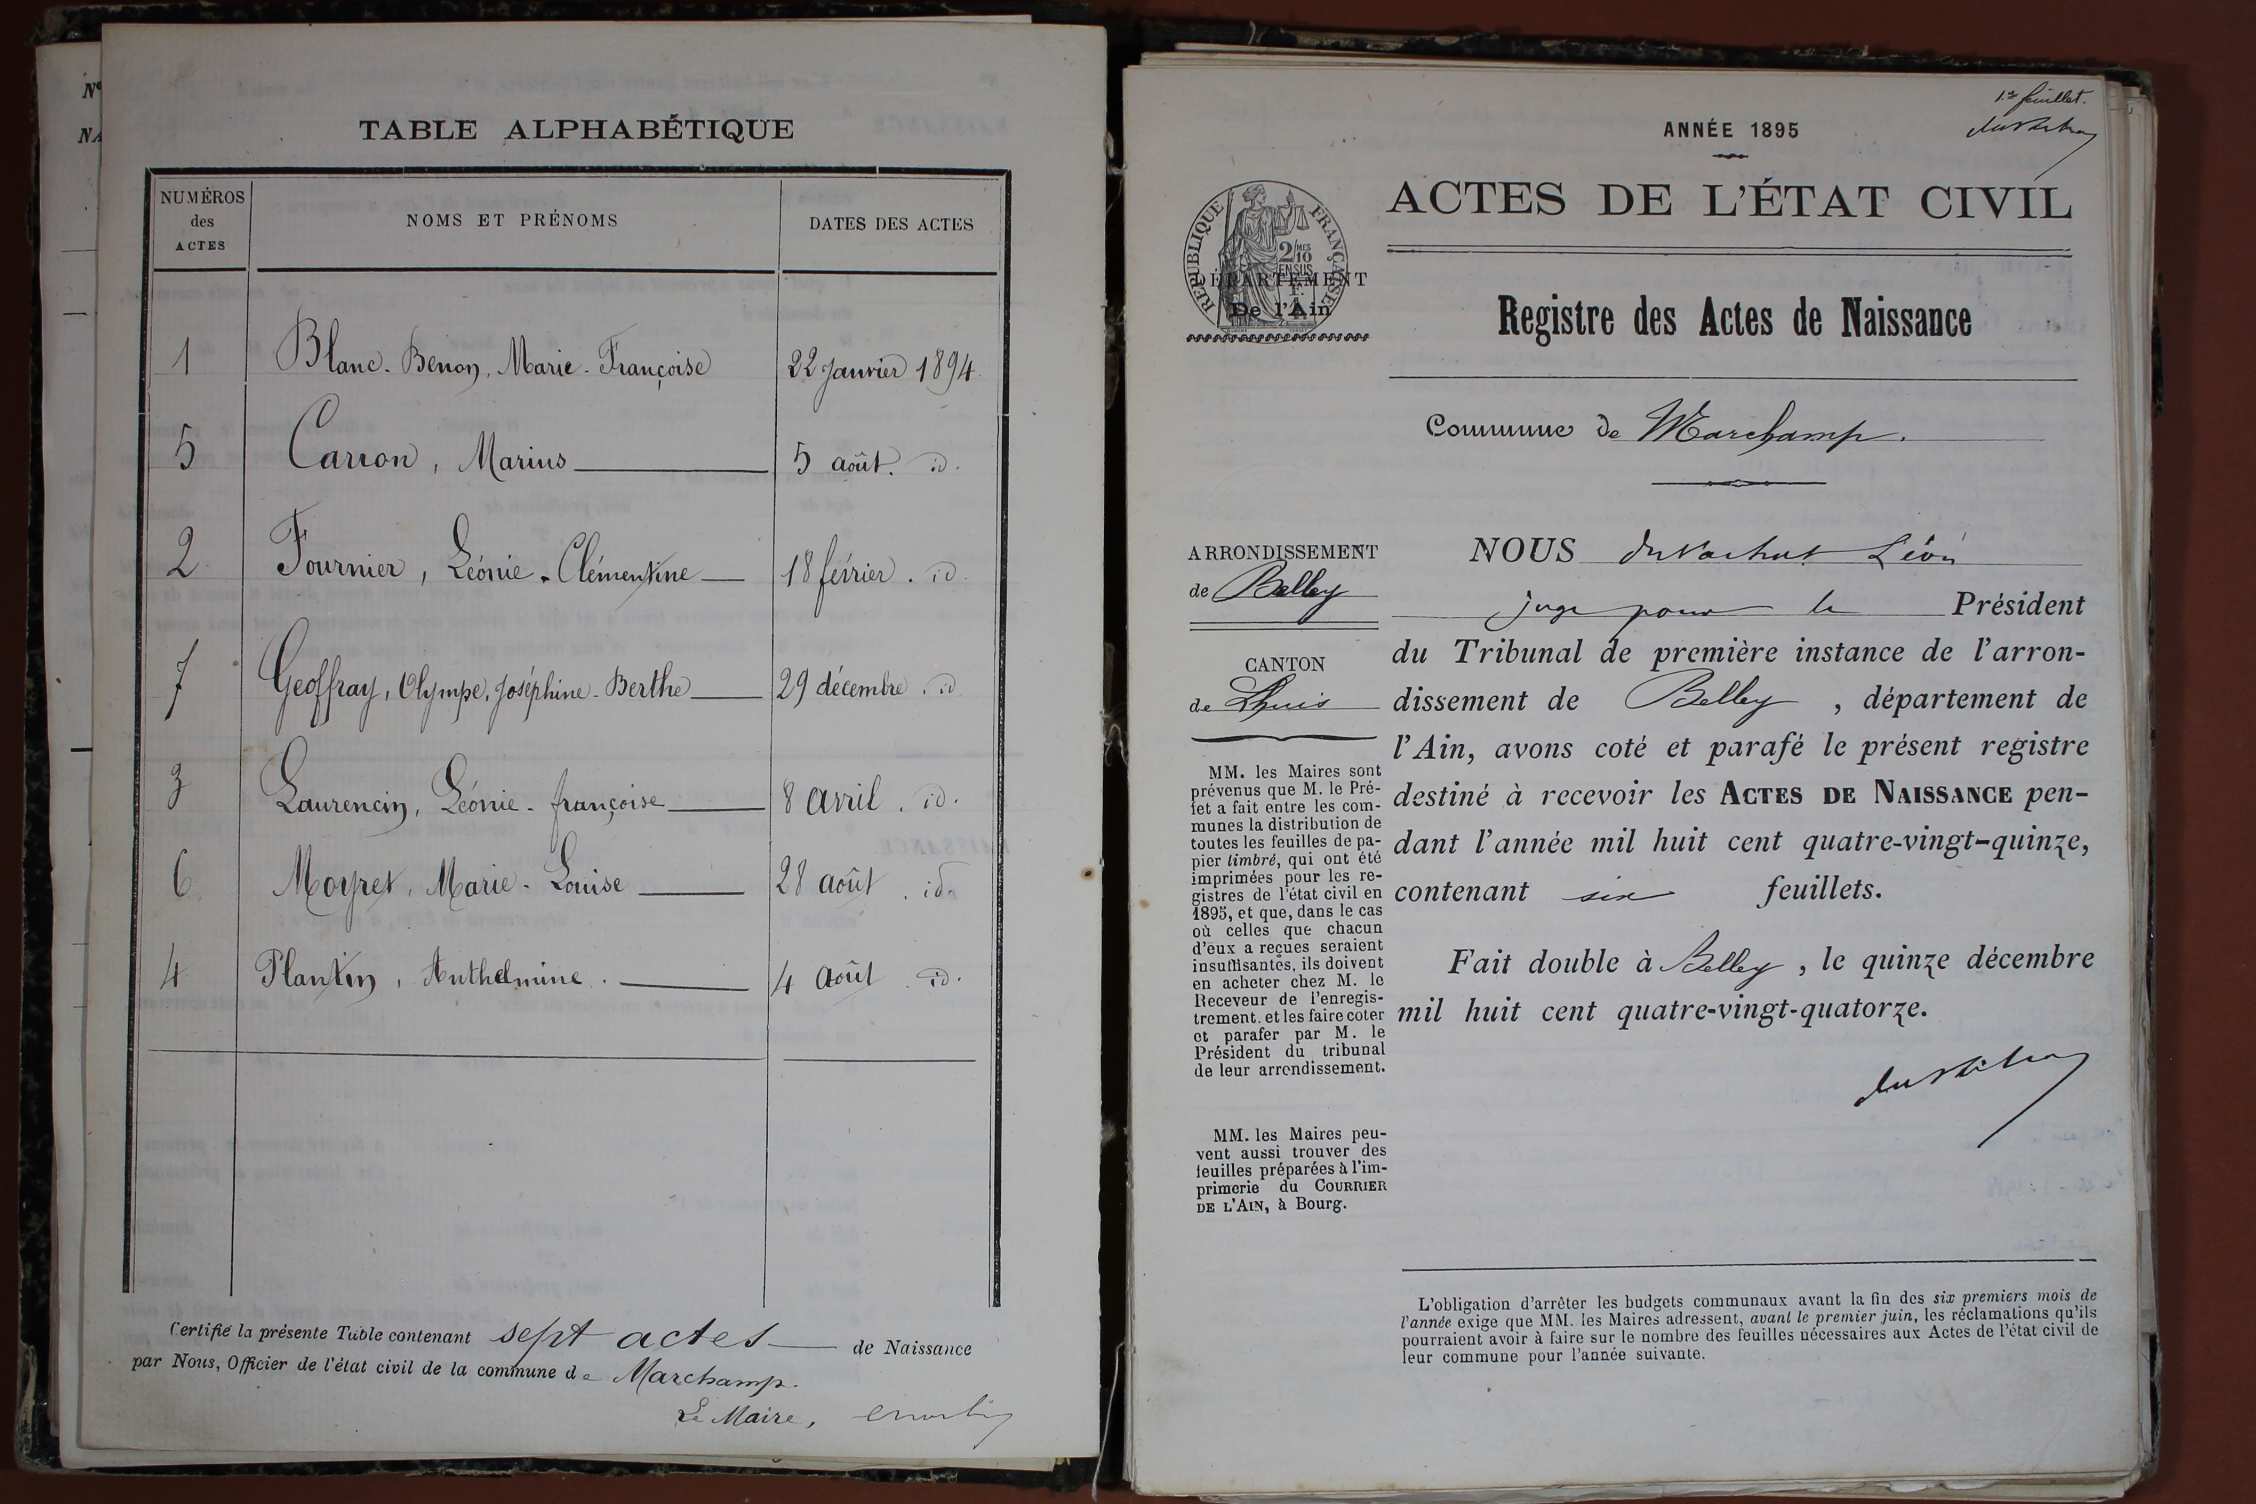 Nº
NA
TABLE ALPHABÉTIQUE
NUMÉROS
des
ACTES
NOMS ET PRÉNOMS
DATES DES ACTES
1 Blanc-Benon, Marie-Françoise 22 Janvier 1894
5 Carron, Marius 5 août. id.
2 Fournier, Léonie-Clémentine 18 février. id.
7 Geoffray, Olympe, Joséphine-Berthe 29 décembre. id
3 Laurencin, Léonie-françoise 8 avril. id.
6 Moyret, Marie-Louise 28 août. id.
4 Plantin, Anthelmine. 4 août. id.
Certifié la présente Table contenant sept actes de Naissance
par Nous, Officier de l'état civil de la commune de Marchamp.
Le Maire,
1er feuillet.
ANNÉE 1895
ACTES DE L'ÉTAT CIVIL
RÉPUBLIQUE FRANÇAISE
2/10 MES
EN SUS
DÉPARTEMENT
De l'Ain
Registre des Actes de Naissance
Commune de Marchamp.
ARRONDISSEMENT
de Belley
CANTON
de Lhuis
MM. les Maires sont
prévenus que M. le Pré-
fet a fait entre les com-
munes la distribution de
toutes les feuilles de pa-
pier timbré, qui ont été
imprimées pour les re-
gistres de l'état civil en
1895, et que, dans le cas
où celles que chacun
d'eux a reçues seraient
insuffisantes, ils doivent
en acheter chez M. le
Receveur de l'enregis-
trement, et les faire coter
et parafer par M. le
Président du tribunal
de leur arrondissement.
MM. les Maires peu-
vent aussi trouver des
feuilles préparées à l'im-
primerie du COURRIER
DE L'AIN, à Bourg.
NOUS Léon
juge pour le Président
du Tribunal de première instance de l'arron-
dissement de Belley, département de
l'Ain, avons coté et parafé le présent registre
destiné à recevoir les ACTES DE NAISSANCE pen-
dant l'année mil huit cent quatre-vingt-quinze,
contenant six feuillets.
Fait double à Belley, le quinze décembre
mil huit cent quatre-vingt-quatorze.
L'obligation d'arrêter les budgets communaux avant la fin des six premiers mois de
l'année exige que MM. les Maires adressent, avant le premier juin, les réclamations qu'ils
pourraient avoir à faire sur le nombre des feuilles nécessaires aux Actes de l'état civil de
leur commune pour l'année suivante.